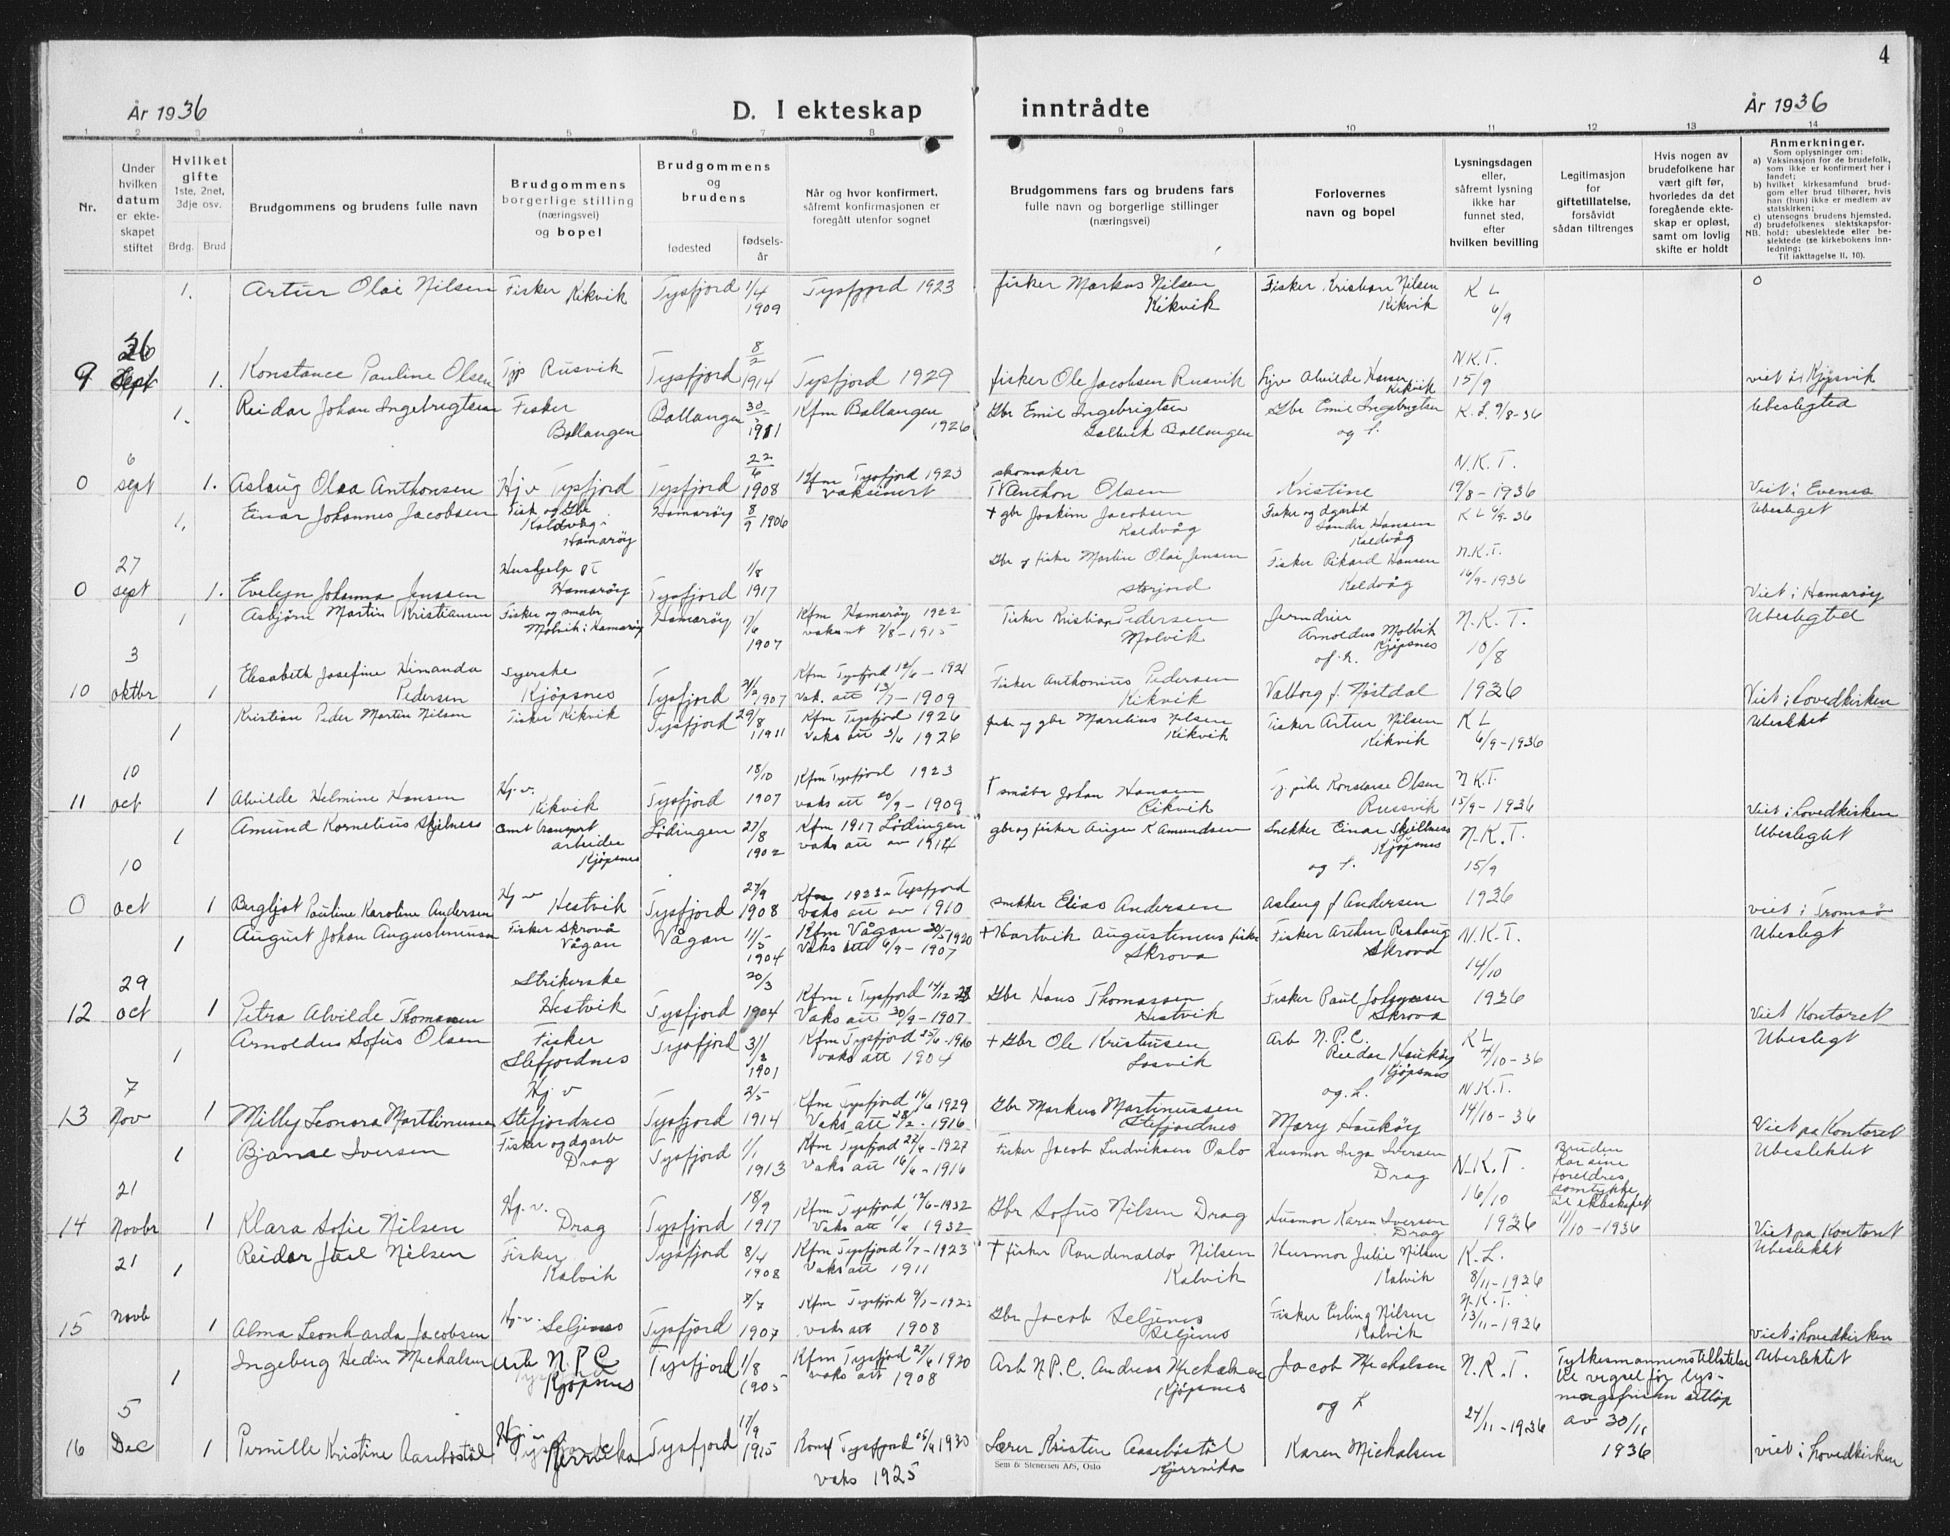 4
År 1936
D. I ekteskap inntrådte
År 1936
1 2 3 4 5 6 7 8 9 10 11 12 13 14
Nr.
Under hvilken datum er ekteskapet stiftet
Hvilket gifte
1ste, 2net, 3dje osv.
Brdg. Brud
Brudgommens og brudens fulle navn
Brudgommens borgerlige stilling (næringsvei) og bopel
Brudgommens og brudens
fødested
fødselsår
Når og hvor konfirmert, såfremt konfirmasjonen er foregått utenfor sognet
Brudgommens fars og brudens fars fulle navn og borgerlige stillinger (næringsvei)
Forlovernes navn og bopel
Lysningsdagen eller, såfremt lysning ikke har funnet sted, efter hvilken bevilling
Legitimasjon for giftetillatelse, forsåvidt sådan tiltrenges
Hvis nogen av brudefolkene har vært gift før, hvorledes da det foregående ekteskap er opløst, samt om lovlig skifte er holdt
Anmerkninger.
Som oplysninger om:
a) Vaksinasjon for de brudefolk, som ikke er konfirmert her i landet;
b) hvilket kirkesamfund brudgom eller brud tilhører, hvis han (hun) ikke er medlem av statskirken;
c) utensogns brudens hjemsted.
d) brudefolkenes slektskapsforhold: ubeslektede eller beslektede (se kirkebokens innledning;
NB. Til iakttagelse ll. 10).
1. Artur Olai Nilsen Fisker Kikvik Tysfjord 1/4 1909 Tysfjord 1923 fisker Markus Nilsen Kikvik Fisker Kristian Nilsen Kikvik K L 6/9 0
9 26 Sept 1. Konstance Pauline Olsen Rusvik Tysfjord 8/2 1914 Tysfjord 1929 fisker Ole Jacobsen Rusvik Hjv Alvilde Hansen Kikvik N.K.T. 15/9 viet i Kjøsvik
1. Reidar Johan Ingebrigtsen Fisker Ballangen Ballangen 1911 Kfm Ballangen 1926 Gbr Emil Ingebrigtsen Ballangen Gbr Emil Ingebrigtsen og f. K.L. 9/8-36 Ubeslegted
0 6 sept 1. Aslaug Olea Anthonsen Hj v Tysfjord Tysfjord 22/6 1908 Kfm Tysfjord 1923 vaksinert skomaker Anthon Olsen Kristine N.K.T. 19/8-1936 Viet i Evenes
1. Einar Johannes Jacobsen Fisk og Gbr Kaldvåg i Hamarøy Hamarøy 8/9 1906 + gbr Joakim Jacobsen Kaldvåg Fisker og dgarbd Sander Hansen Kaldvåg K L 6/9-36 Ubesleget
0 27 sept 1. Evelyn Johanna Jenssen Hushjelp Hamarøy Tysfjord 1/8 1917 Gbr og fisker Martin Olai Jensen Storjord Fisker Rikard Hansen Kaldvåg N.K.T. 16/9-1936 Viet i Hamarøy
1 Asbjørn Martin Kristiansen Fisker og småbr Molvik i Hamarøy Hamarøy 17/6 1907 Kfm Hamarøy 1922 vaksnt 7/8-1915 Fisker Kristian Pedersen Molvik Arnoldus Molvik Kjøpsnes N.K.T. 10/8 Ubeslegted
10 3 oktbr 1 Elisabeth Josefine Himanda Pedersen Syerske Kjøpsnes Tysfjord 1907 Kfm Tysfjord 12/6-1921 Vak. att 13/7-1909 Fisker Anthonius Pedersen Kikvik Valborg f. Nøstdal 1936 Viet i hovedkirken
1 Kristian Peder Martin Nilsen Fisker Kikvik Tysfjord 29/8 1911 Kfm Tysfjord 1926 Vaks att 3/6 1926 fisker og gbr Marelius Nilsen Kikvik Fisker Artur Nilsen Kikvik K L 6/9-1936 Ubeslktet
11 10 oct 1 Alvilde Helmine Hansen Hj.v. Kikvik Tysfjord 18/10 1907 Kfm Tysfjord 1923 vaks att 20/9-1909 + småbr Johan Hansen Kikvik Konstanse Olsen Russvik N.K.T. 15/9-1936 Viet i hovedkirken
1 Amund Kornelius Skjelnes Amt transport arbeider Kjøpsnes Lødingen 27/8 1902 Kfm 1917 Lødingen vaks att av 1914 gbr og fisker Anger K Amundsen Snekker Einar Skjellnes Kjøpsnes og f. N.K.T. 15/9 Ubeslegtet
0 10 oct 1 Bergljot Pauline Karoline Andersen Hj v Hestvik Tysfjord 27/9 1908 Kfm 1923 Tysfjord vaks att av 1910 snekker Elias Andersen Aslaug f Andersen 1936 viet i Tromsø
1 August Johan Augustinussen Fisker Skrova Vågan Vågan 11/5 1904 Kfm Vågan 30/5 1920 Vaks att 6/9-1907 + Hartvik Augustinus fisker Skrova Fisker Arthur Skrova N.K.T. 14/10 Ubeslegt
12 29 oct 1 Petra Alvilde Thomassen Strikerske Hestvik Tysfjord 20/3 1904 Kfm i Tysfjord Vaks att 30/9-1907 Gbr Hans Thomassen Hestvik Fisker Paul Johansen Skrova 1936 Viet Kontoret
1 Arnoldus Sofus Olsen Fisker Stefjordnes Tysfjord 1901 Kfm Tysfjord vaks att 1904 + Gbr Ole Kristensen Losvik Arb N.P.C. Reidar Haukøy Kjøpsnes og f. K L 4/10-36 Ubeslegt
13 7 Nov 1 Milly Leonora Marthinussen Hj v Stefjordnes Tysfjord 2/5 1914 Kfm Tysfjord 16/6 1929 Vaks att 28/2-1916 Gbr Markus Martinussen Stefjordnes Mary Haukøy N.K.T. 14/10-36 Viet på Kontoret
1 Bjarne Iversen Fisker og dgarb Drag Tysfjord 1/1 1913 Kfm Tysfjord 27/6-1927 Vaks att 16/6-1916 Fisker Jacob Ludviksen Oslo Husmor Inga Iversen Drag N.K.T. 16/10 Bruden har sine foreldres samtykke til ekteskapet Ubeslektet
14 21 Novbr 1 Klara Sofie Nilsen Hj.v. Drag Tysfjord 18/9 1917 Kfm Tysfjord 12/6-1932 Vaks att 1932 Gbr Sofus Nilsen Drag Husmor Karen Iversen Drag 1936 1/10-1936 Viet på Kontoret
21 1 Reidar Jarl Nilsen Fisker Kalvik Tysfjord 8/4 1908 Kfm Tysfjord 1/7-1923 Vaks att 1911 + fisker Randinaldo Nilsen Kalvik Husmor Julie Nilsen Kalvik K.L. 8/11-1936 Ubeslektet
15 Novb 1 Alma Leonharda Jacobsen Hj.v. Seljenes Tysfjord 7/7 1907 Kfm Tysfjord 9/7-1922 vaks att 1908 Gbr Jacob Seljenes Seljenes Fisker Erling Nilsen Kalvik N.K.T. 13/11-1936 Viet i hovedkirken
1 Ingeberg Hedin Mickalsen Arb N.P.C Kjøpsnes Tysfjord 1/8 1905 Kfm Tysfjord 27/6 1920 vaks att 1908 Arb N.P.C. Andreas Mickalsen Kjøpsnes Jacob Mickalsen og f N.K.T. 24/11-1936 Fylkesmannens tillatelse til vigsel før lysningsfristen utløp av 30/11 1936 Ubeslektet
16 5 Dec 1 Pernille Kristine Aasebøstøl Hj v Kjerrvika Tysfjord 17/9 1915 Konf Tysfjord 1930 vaks 1925 Lærer Kristen Aasebøstøl Kjerrvika Karen Mickalsen viet i hovedkirken
Sem & Stenersen A/S, Oslo